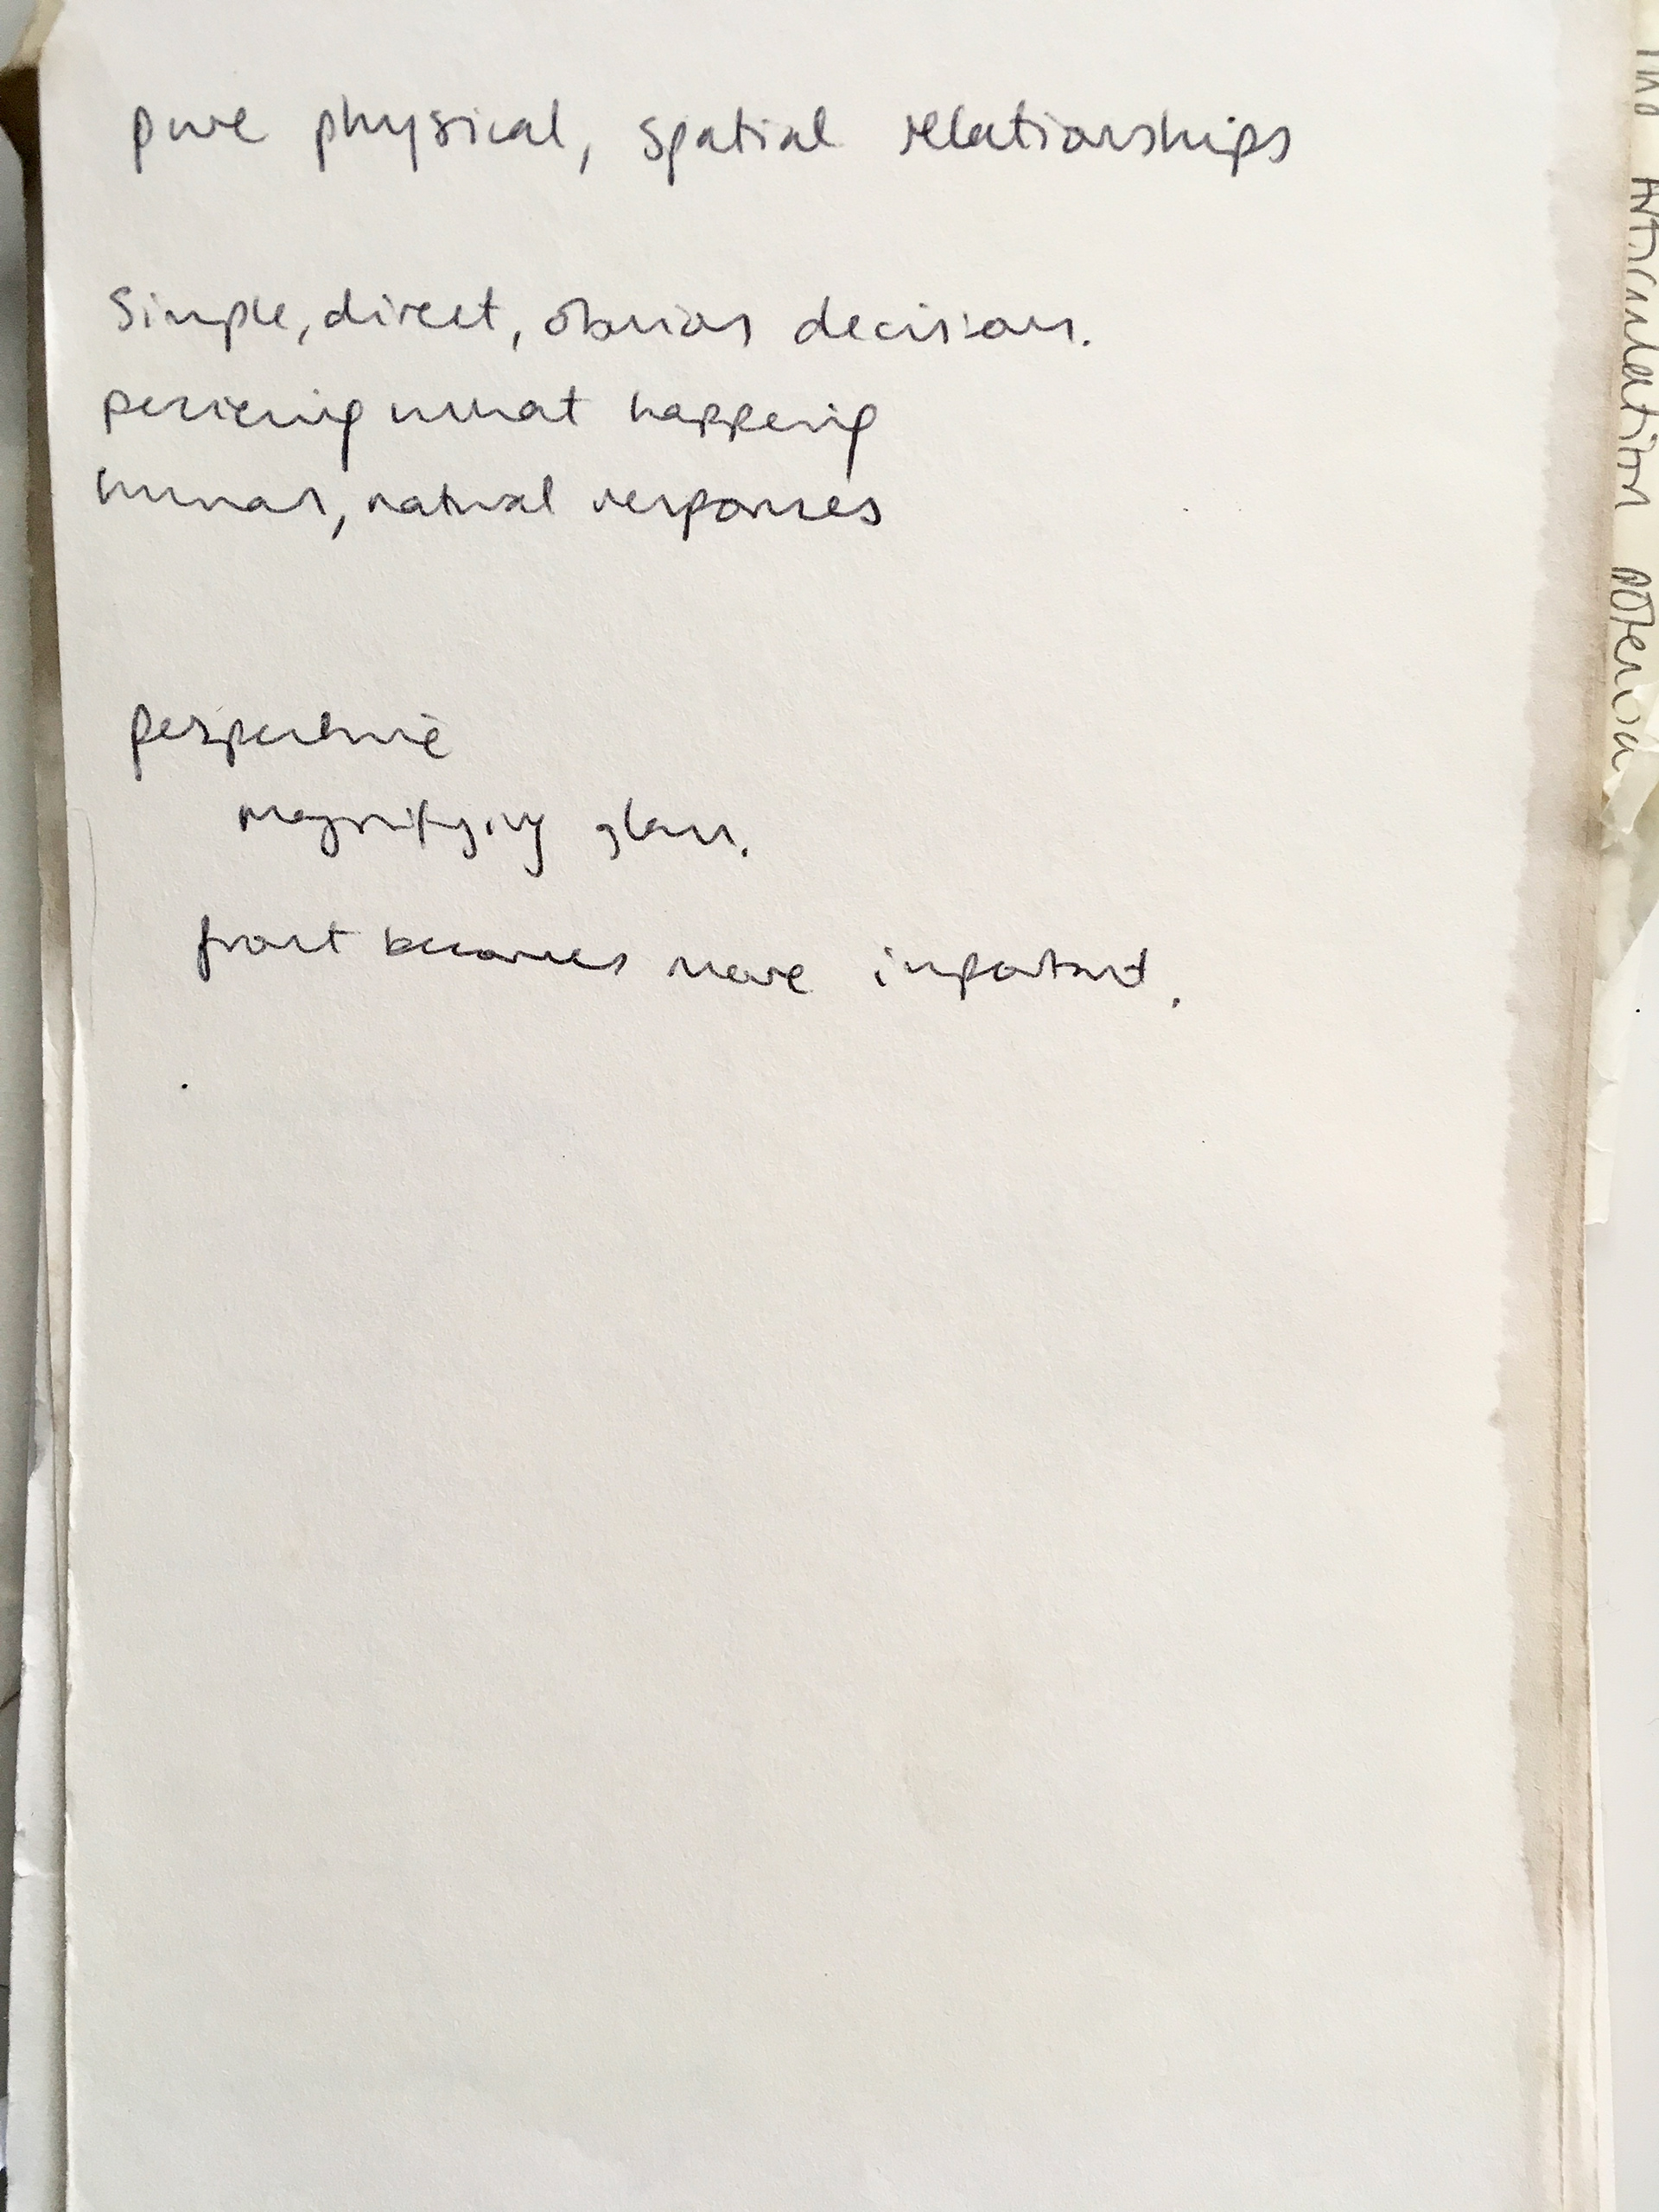 pure physical, spatial relationships
Simple, direct, obvious decisions.
what happening
human, natural responses
perspective
magnifying glass.
front becomes more important.